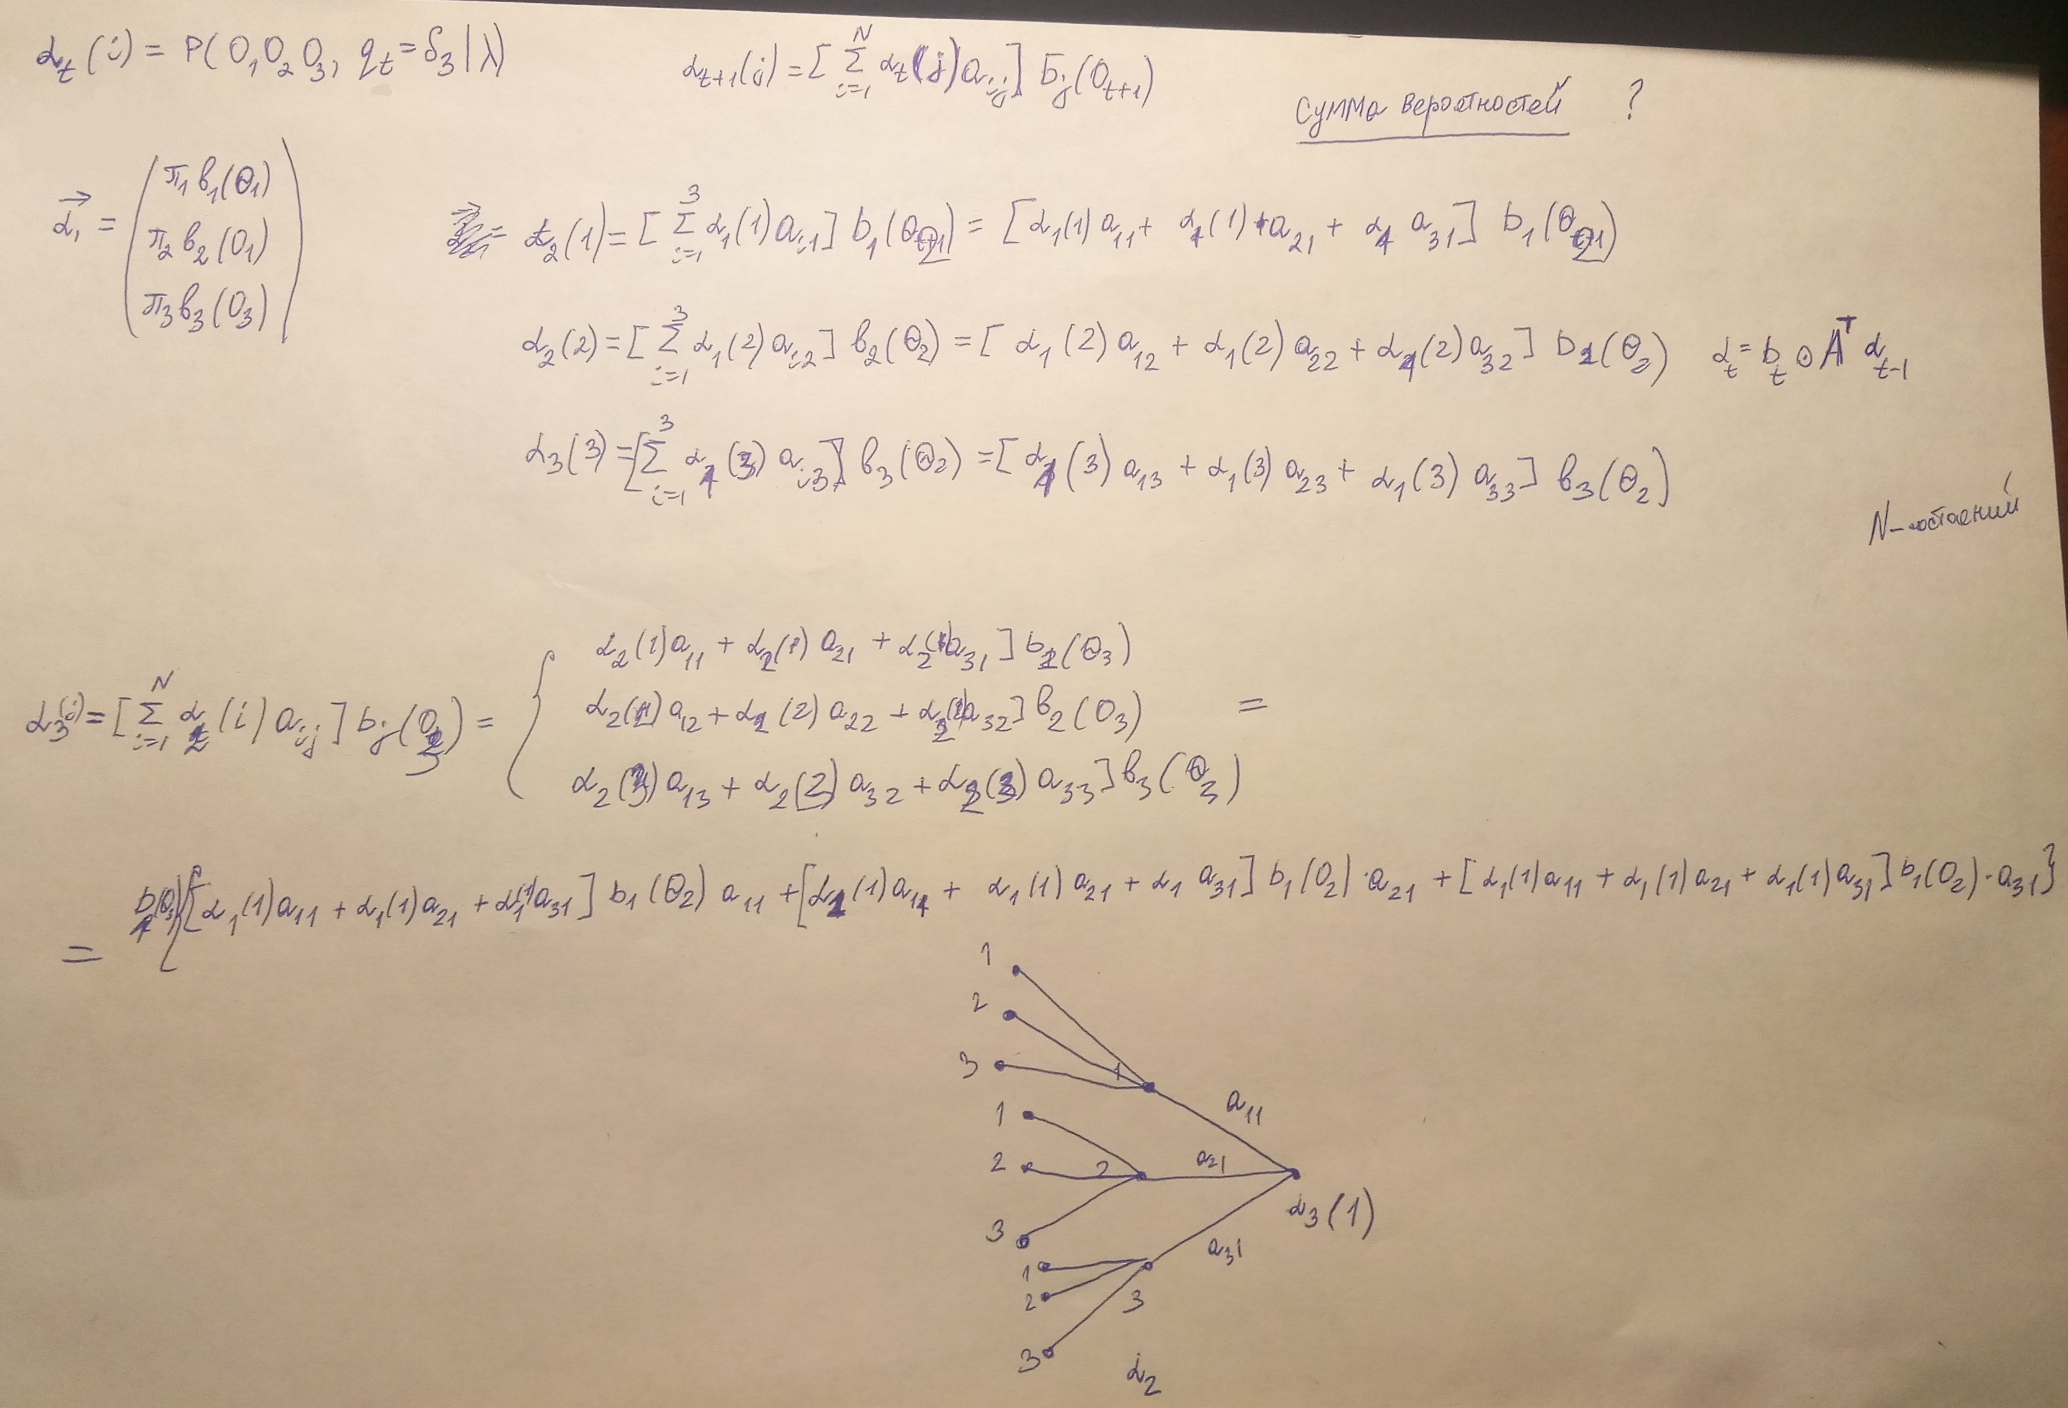 α_t(i) = P(O₁O₂O₃, q_t = δ₃|λ)
α_{t+1}(j) = [Σ_{i=1}^{N} α_t(j) a_{ij}] b_j(O_{t+1})
Сумма вероятностей ?
α⃗₁ = (π₁ b₁(O₁)
π₂ b₂(O₁)
π₃ b₃(O₃))
α₂(1) = [Σ_{i=1}^{3} α₁(1) a_{i1}] b₁(O₂) = [α₁(1) a₁₁ + α₁(1) a₂₁ + α₁ a₃₁] b₁(O₂)
α₂(2) = [Σ_{i=1}^{3} α₁(2) a_{i2}] b₂(O₂) = [α₁(2) a₁₂ + α₁(2) a₂₂ + α₁(2) a₃₂] b₂(O₂) α_t = b_t ⊙ A^T α_{t-1}
α₃(3) = [Σ_{i=1}^{3} α₁(3) a_{i3}] b₃(O₂) = [α₁(3) a₁₃ + α₁(3) a₂₃ + α₁(3) a₃₃] b₃(O₂)
N –
α₂(1) a₁₁ + α₂(1) a₂₁ + α₂(1) a₃₁] b₁(O₃)
α₃(i) = [Σ_{i=1}^{N} α₂(i) a_{ij}] b_j(O₃) = { α₂(1) a₁₂ + α₂(2) a₂₂ + α₂ a₃₂] b₂(O₃) =
α₂ a₁₃ + α₂(2) a₃₂ + α₂(3) a₃₃] b₃(O₃)
= b₁(O₃){[α₁(1) a₁₁ + α₁(1) a₂₁ + α₁(1) a₃₁] b₁(O₂) a₁₁ + [α₁(1) a₁₁ + α₁(1) a₂₁ + α₁ a₃₁] b₁(O₂)·a₂₁ + [α₁(1) a₁₁ + α₁(1) a₂₁ + α₁(1) a₃₁] b₁(O₂)·a₃₁}
1
2
3 1
a₁₁
1
2 2 a₂₁
α₃(1)
3
a₃₁
1
2 3
3
α₂